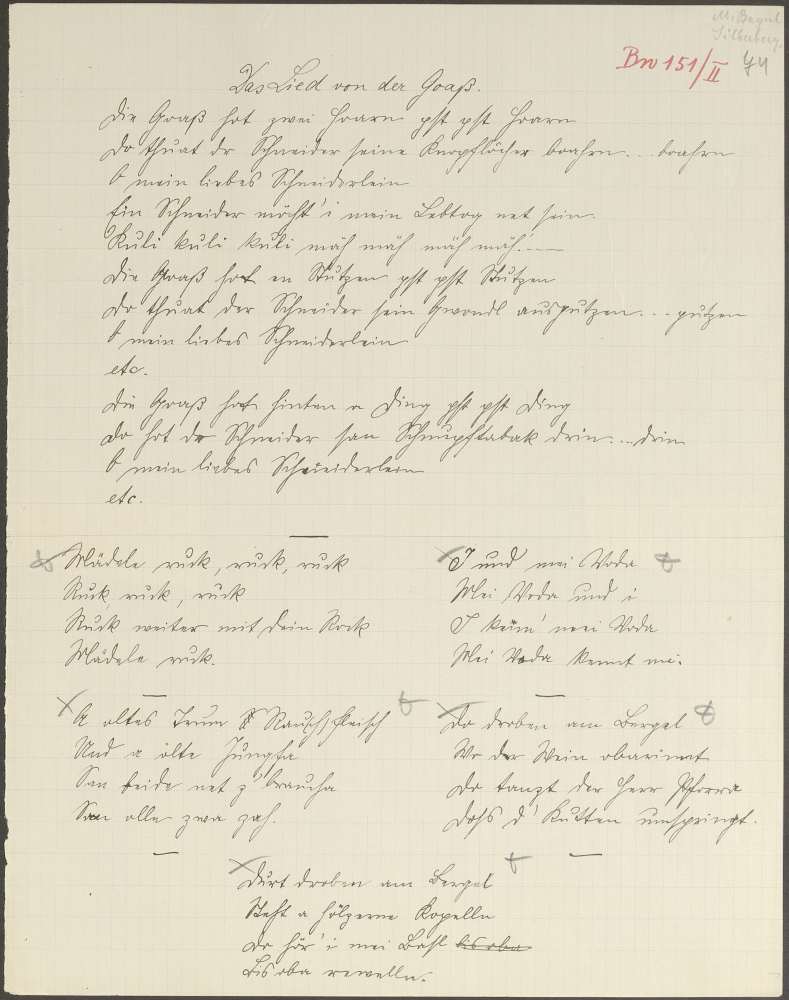 M. Bayerl
Silberberg.
Bw 151/II 44
Das Lied von der Goaß.
Die Goaß hot zwei Hoarn pst pst Hoarn
Do thuat dr Schneider seine Knopflöcher boahrn... boahrn
O mein liebes Schneiderlein
Ein Schneider möcht' i mein Lebtog net sein.
Kuli kuli kuli mäh mäh mäh mäh.—
Die Goaß hot en Stutzen pst pst Stutzen
Do thuat der Schneider sein Gwandl ausputzen... putzen
O mein liebes Schneiderlein
etc.
Die Goaß hot hinten a Ding pst pst Ding
Do hot dr Schneider san Schnupftabak drin... drin
O mein liebes Schneiderlein
etc.
Mädele ruck, ruck, ruck
Ruck, ruck, ruck
Ruck weiter mit dein Rock
Mädele ruck.
I und mei Voda
Mei Voda und i
I kenn' mei Voda
Mei Voda kennt mi.
A altes Trum Rauchfleisch
Und a olte Jungfa
San beide net z' braucha
San olle zwa zah.
Do droben am Bergel
Wo der Wein obarinnt
Do tanzt der Herr Pforra
Dohs d' Kutten umspringt.
Durt droben am Bergel
Steht a hölzerne Kopelln
Do hör' i mei Bahl bis oba
Bis oba rewelln.